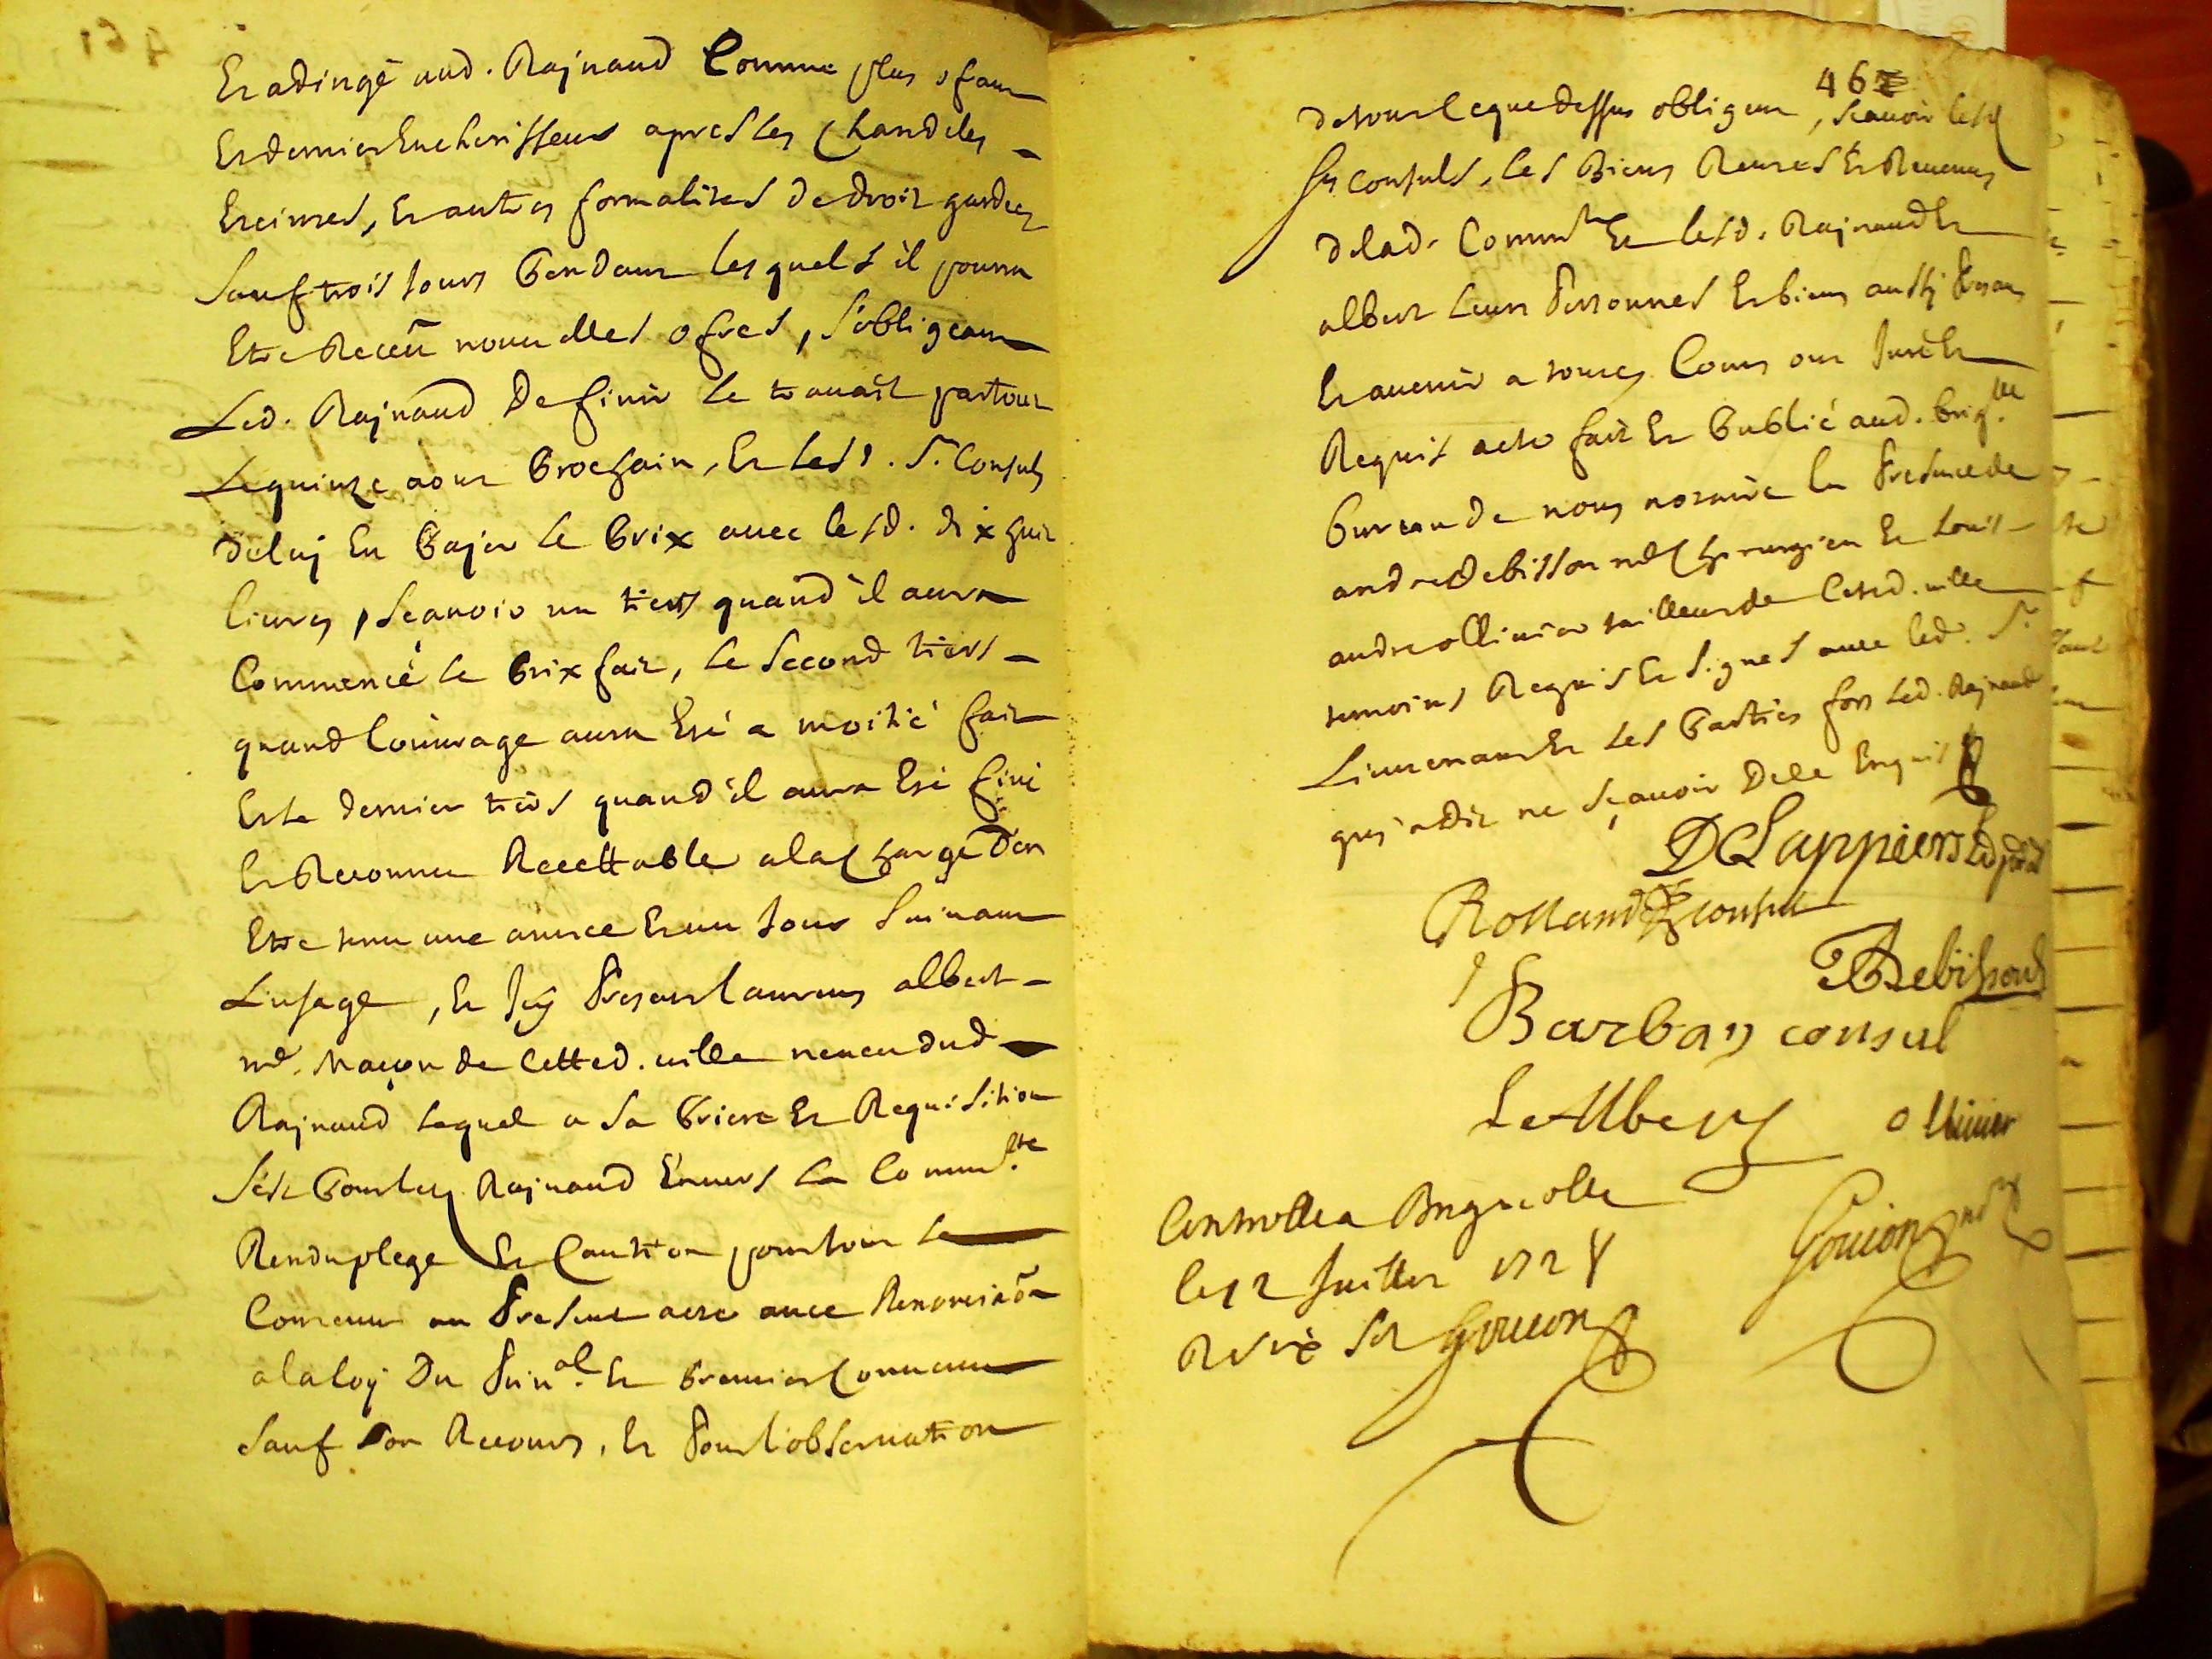 Et adiugé aud. Rajnaud Comme plus ofrant
Et dernier Encherisseur apres les Chandeles
Eteintes, Et autres formalites de droit gardees
Sauf trois Jours Pendant lesquels il pourra
Etre Receü nouuelles ofres, S'obligeant
Led. Rajnaud De finir le trauail partout
Le quinze aout Prochain, Et lesd. Srs Consuls
De luj En Pajer le Prix auec lesd. dix huit
liures, Scauoir un tiers quand il aura
Commencé le Prix fait, le Second tiers
quand l'ouurage aura Esté a moitié fait
Et le dernier tiers quand il aura Esté fini
Et Reconnu Recettable a la Charge d'en
Etre tenu une année Et un Jour Suiuant
L'usage, Et Icy Present Laurens albert
md. Maçon de Cetted. uille neueu dud
Rajnaud Lequel a Sa Priere Et Requisition
S'est Pour led Rajnaud Enuers la Commté.
Rendu plege Et Caution pour tout le
Contenu au Present acte auec Renonciaõn
a la loy Du Prin.al Et Premier Conuenu
Sauf Son Recours, Et Pour l'obseruation
462
de tout Ce que dessus obligent, Scauoir lesd
Srs Consuls, les Biens Rentes Et Reuenus
de lad. Commté Et lesd. Rajnaud Et
albert Leurs Personnes Et biens aussy Presans
Et auenir a toutes Cours ont Juré Et
Requis acte fait Et Publié aud. Brig.lle
Bureau de nous notaire En Presence de
andre Debisson md Chirurgien Et Louis
andre ollivier tailleur de Cetted. uille
temoins Requis Et Signes auec led. Sr
Lieutenant Et les Parties fors led. Rajnaud
qui a dit ne Sçauoir De le Enquis
D Clappiers
Rolland consul
Debisson
Barban consul
L Albert
ollivier
Controlle a Brignolle
le 12 Juillet 1724
Goujon
Goujon